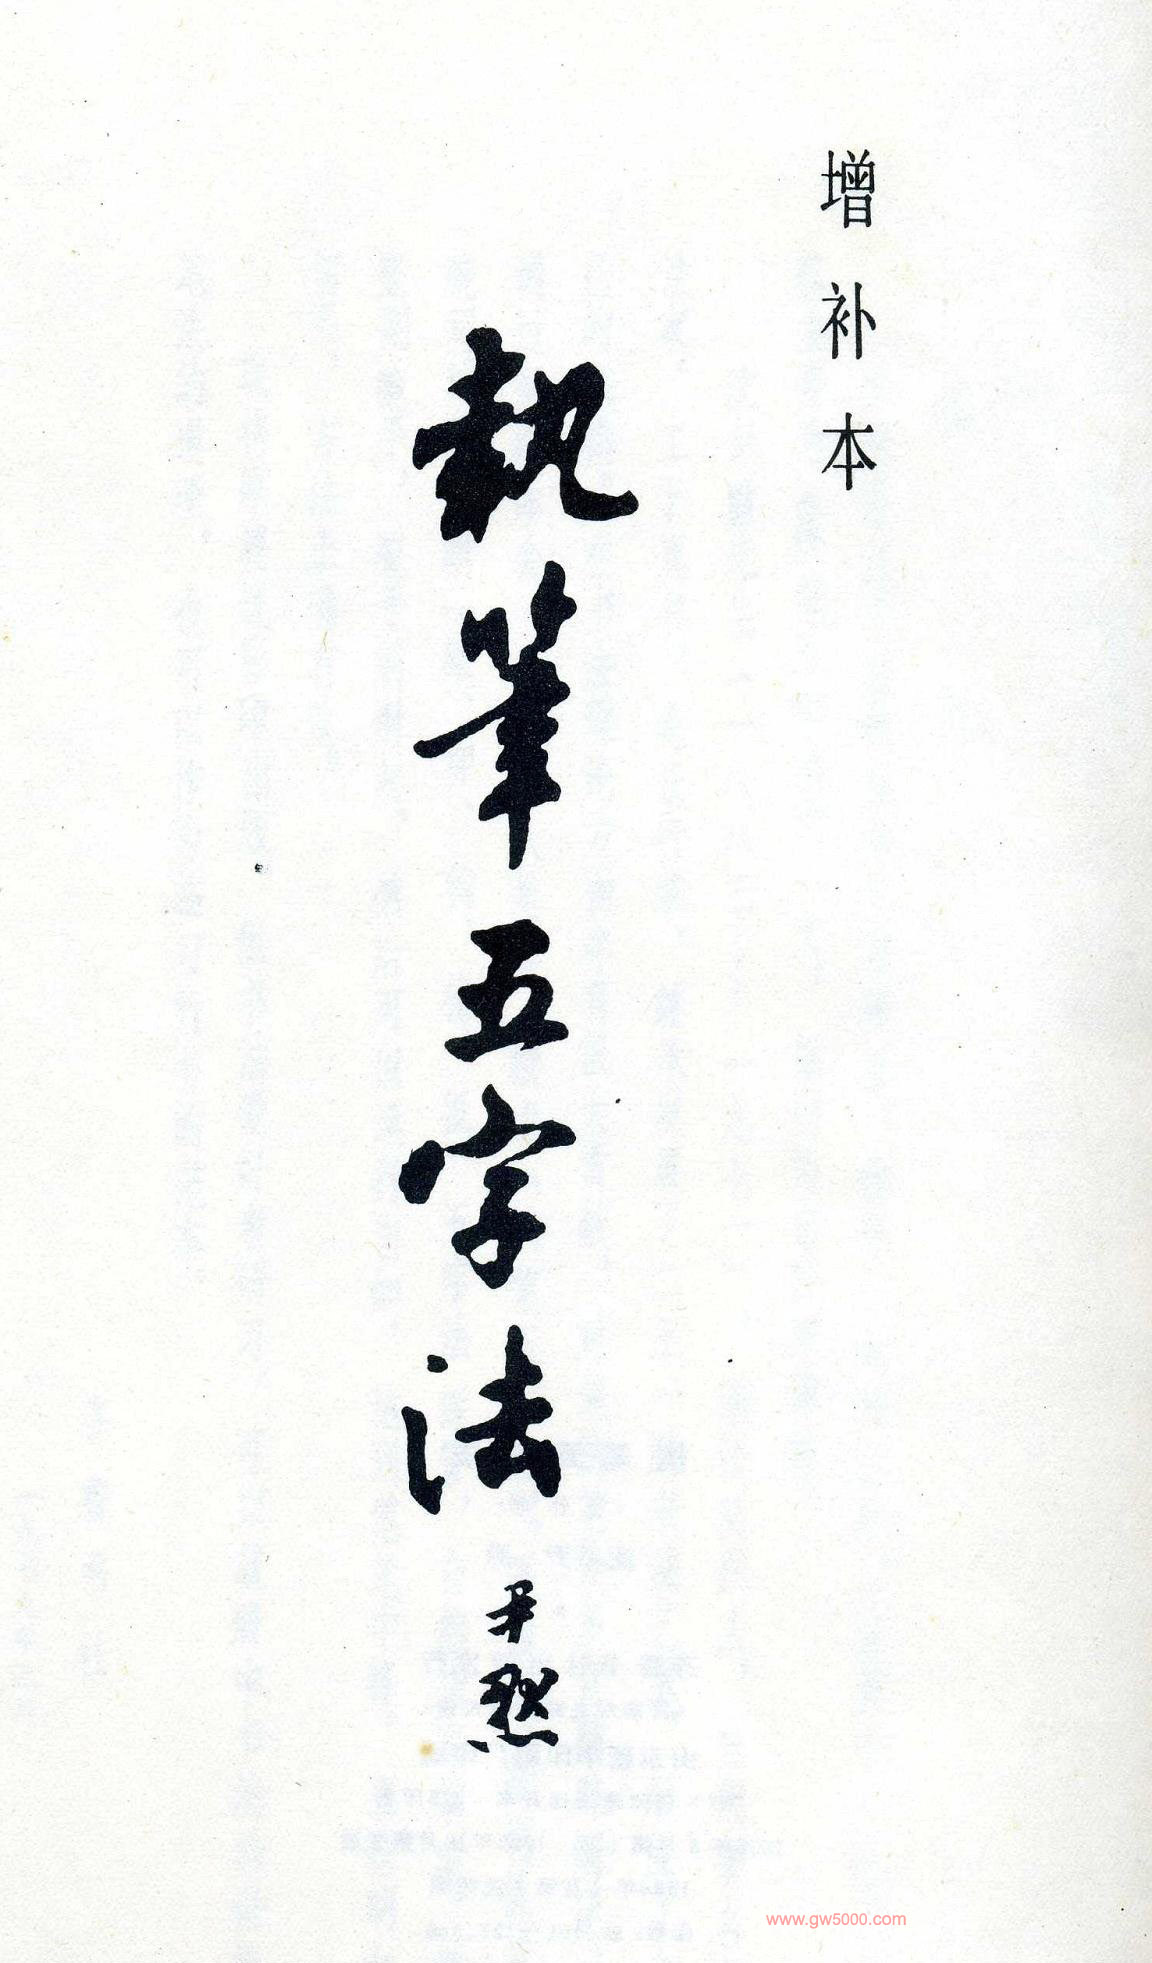 增补本
執筆五字法
尹默
www.gw5000.com